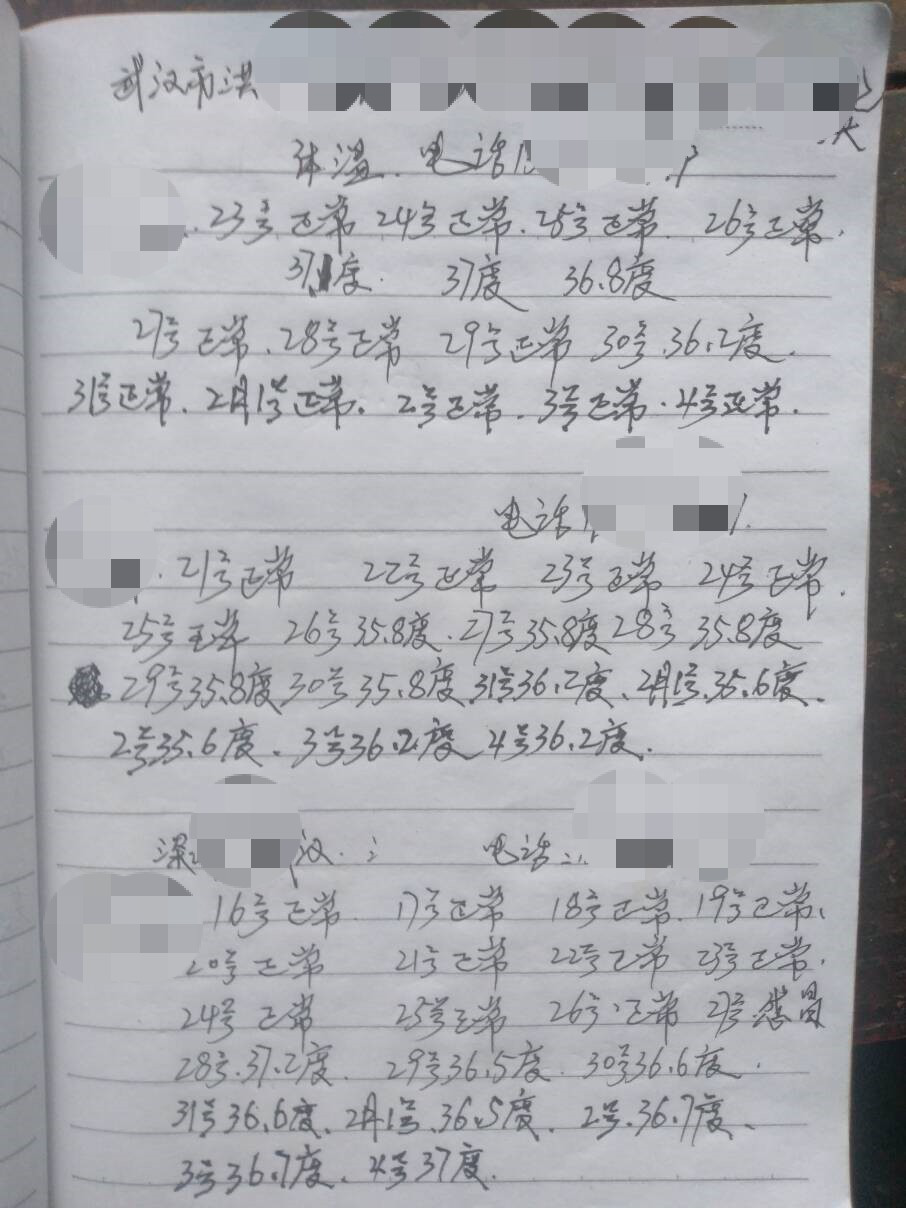 武汉市洪
体温. 电话
23号正常 24号正常. 25号正常. 26号正常.
37.1度. 37度 36.8度
27号正常. 28号正常 29号正常 30号.36.2度.
31号正常. 2月1号正常. 2号正常. 3号正常. 4号正常.
电话
21号正常 22号正常 23号正常 24号正常.
25号正常 26号35.8度. 27号35.8度 28号 35.8度
29号35.8度 30号35.8度 31号36.2度. 2月1号.35.6度.
2号35.6度. 3号36.2度 4号36.2度.
汉. 电话
16号正常. 17号正常 18号正常. 19号正常.
20号正常 21号正常 22号正常 23号正常.
24号正常 25号正常 26号.正常 27号.感冒
28号.37.2度. 29号36.5度. 30号36.6度.
31号36.6度. 2月1号.36.5度. 2号.36.7度.
3号36.7度. 4号37度.